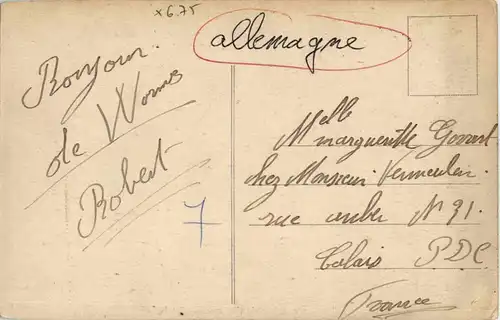 x 6.75
allemagne
Bonjour
de Worms
Robert
7
Melle
margueritte
chez Monsieur Vermeulen
rue N 91.
Calais PDC
France